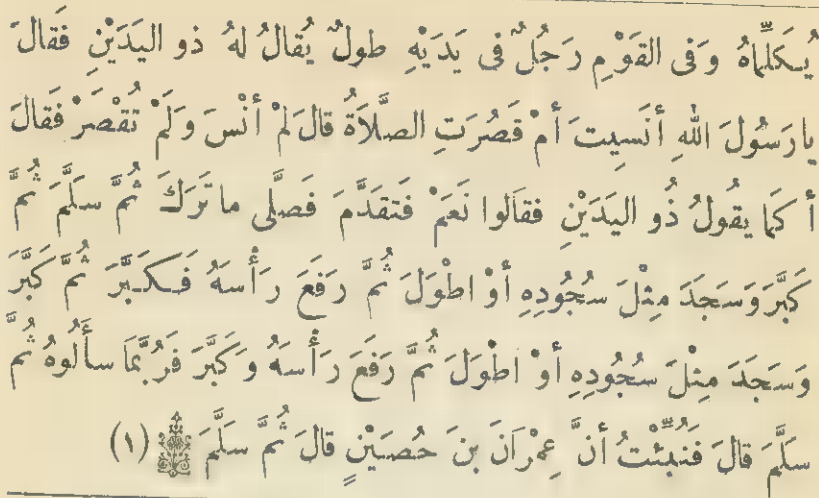 يُكَلِّمَاهُ وَفِى القَوْمِ رَجُلٌ فِى يَدَيْهِ طولٌ يُقالُ لهُ ذو اليَدَيْنِ فَقالَ
يارَسُولَ اللهِ أنَسِيتَ أمْ قَصُرَتِ الصَّلاَةُ قالَ لمْ أنْسَ وَلَمْ تُقْصَرْ فَقالَ
أ كَمَا يقُولُ ذُو اليَدَيْنِ فقالوا نَعَمْ فَتقدَّمَ فَصلَّى ما تَرَكَ ثُمَّ سلَّمَ ثُمَّ
كَبَّرَ وَسَجَدَ مِثْلَ سُجُودِهِ أوْ اطْوَلَ ثُمَّ رَفَعَ رَأْسَهُ فَكَبَّرَ ثُمَّ كَبَّرَ
وَسَجَدَ مِثْلَ سُجُودِهِ أوْ اطْوَلَ ثُمَّ رَفَعَ رَأْسَهُ وَكَبَّرَ فَرُبَّمَا سألُوهُ ثُمَّ
سَلَّمَ قالَ فَنُبِّئْتُ أنَّ عِمْرَانَ بنَ حُصَيْنٍ قالَ ثُمَّ سَلَّمَ (١)